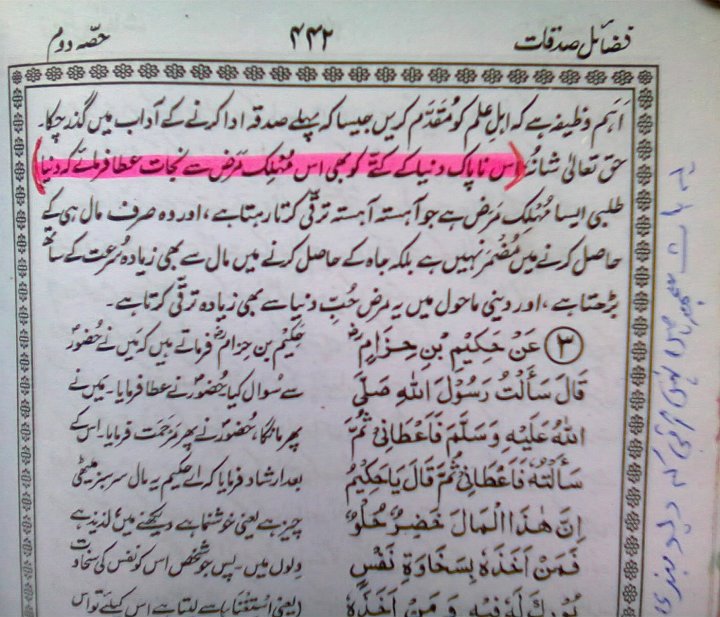 فضائل صدقات ۴۴۲ حصّہ دوم
اَہم وظیفہ ہے کہ اہلِ علم کو مُقدّم کریں جیسا کہ پہلے صدقہ ادا کرنے کے آداب میں گذر چکا۔
حق تعالیٰ شانُہٗ (اس ناپاک دنیا کے کتّے کو بھی اس مُہلِک مَرض سے نجات عطا فرمائے کہ دنیا)
طلبی ایسا مُہلِک مَرض ہے جو آہستہ آہستہ ترقی کرتا رہتا ہے، اور وہ صرف مال ہی کے
حاصل کرنے میں مُضمَر نہیں ہے بلکہ جاہ کے حاصل کرنے میں مال سے بھی زیادہ سُرعت کے ساتھ
بڑھتا ہے، اور دینی ماحول میں یہ مرض حُبِّ دنیا سے بھی زیادہ ترقّی کرتا ہے۔
③ عَنْ حَكِيْمِ بْنِ حِزَامٍؓ
قَالَ سَأَلْتُ رَسُوْلَ اللهِ صَلَّى
اللهُ عَلَيْهِ وَسَلَّمَ فَاَعْطَانِىْ ثُمَّ
سَأَلْتُهٗ فَاَعْطَانِىْ ثُمَّ قَالَ يَا حَكِيْمُ
اِنَّ هٰذَا الْمَالَ خَضِرٌ حُلْوٌ
فَمَنْ اَخَذَهٗ بِسَخَاوَةِ نَفْسٍ
بُوْرِكَ لَهٗ فِيْهِ وَمَنْ اَخَذَهٗ
حکیم بن حزامؓ فرماتے ہیں کہ مَیں نے حُضورؐ
سے سُوال کیا۔ حُضورؐ نے عطا فرمایا۔ مَیں نے
پھر مانگا، حُضورؐ نے پھر مَرحَمت فرمایا۔ اس کے
بعد ارشاد فرمایا کہ اے حکیم یہ مال سرسبز میٹھی
چیز ہے یعنی خوشنما ہے دیکھنے میں لذیذ ہے
دلوں میں۔ پس جو شخص اس کو نفس کی سخاوت
(یعنی اِستِغنا) سے لیتا ہے اس کیلئے تو اس